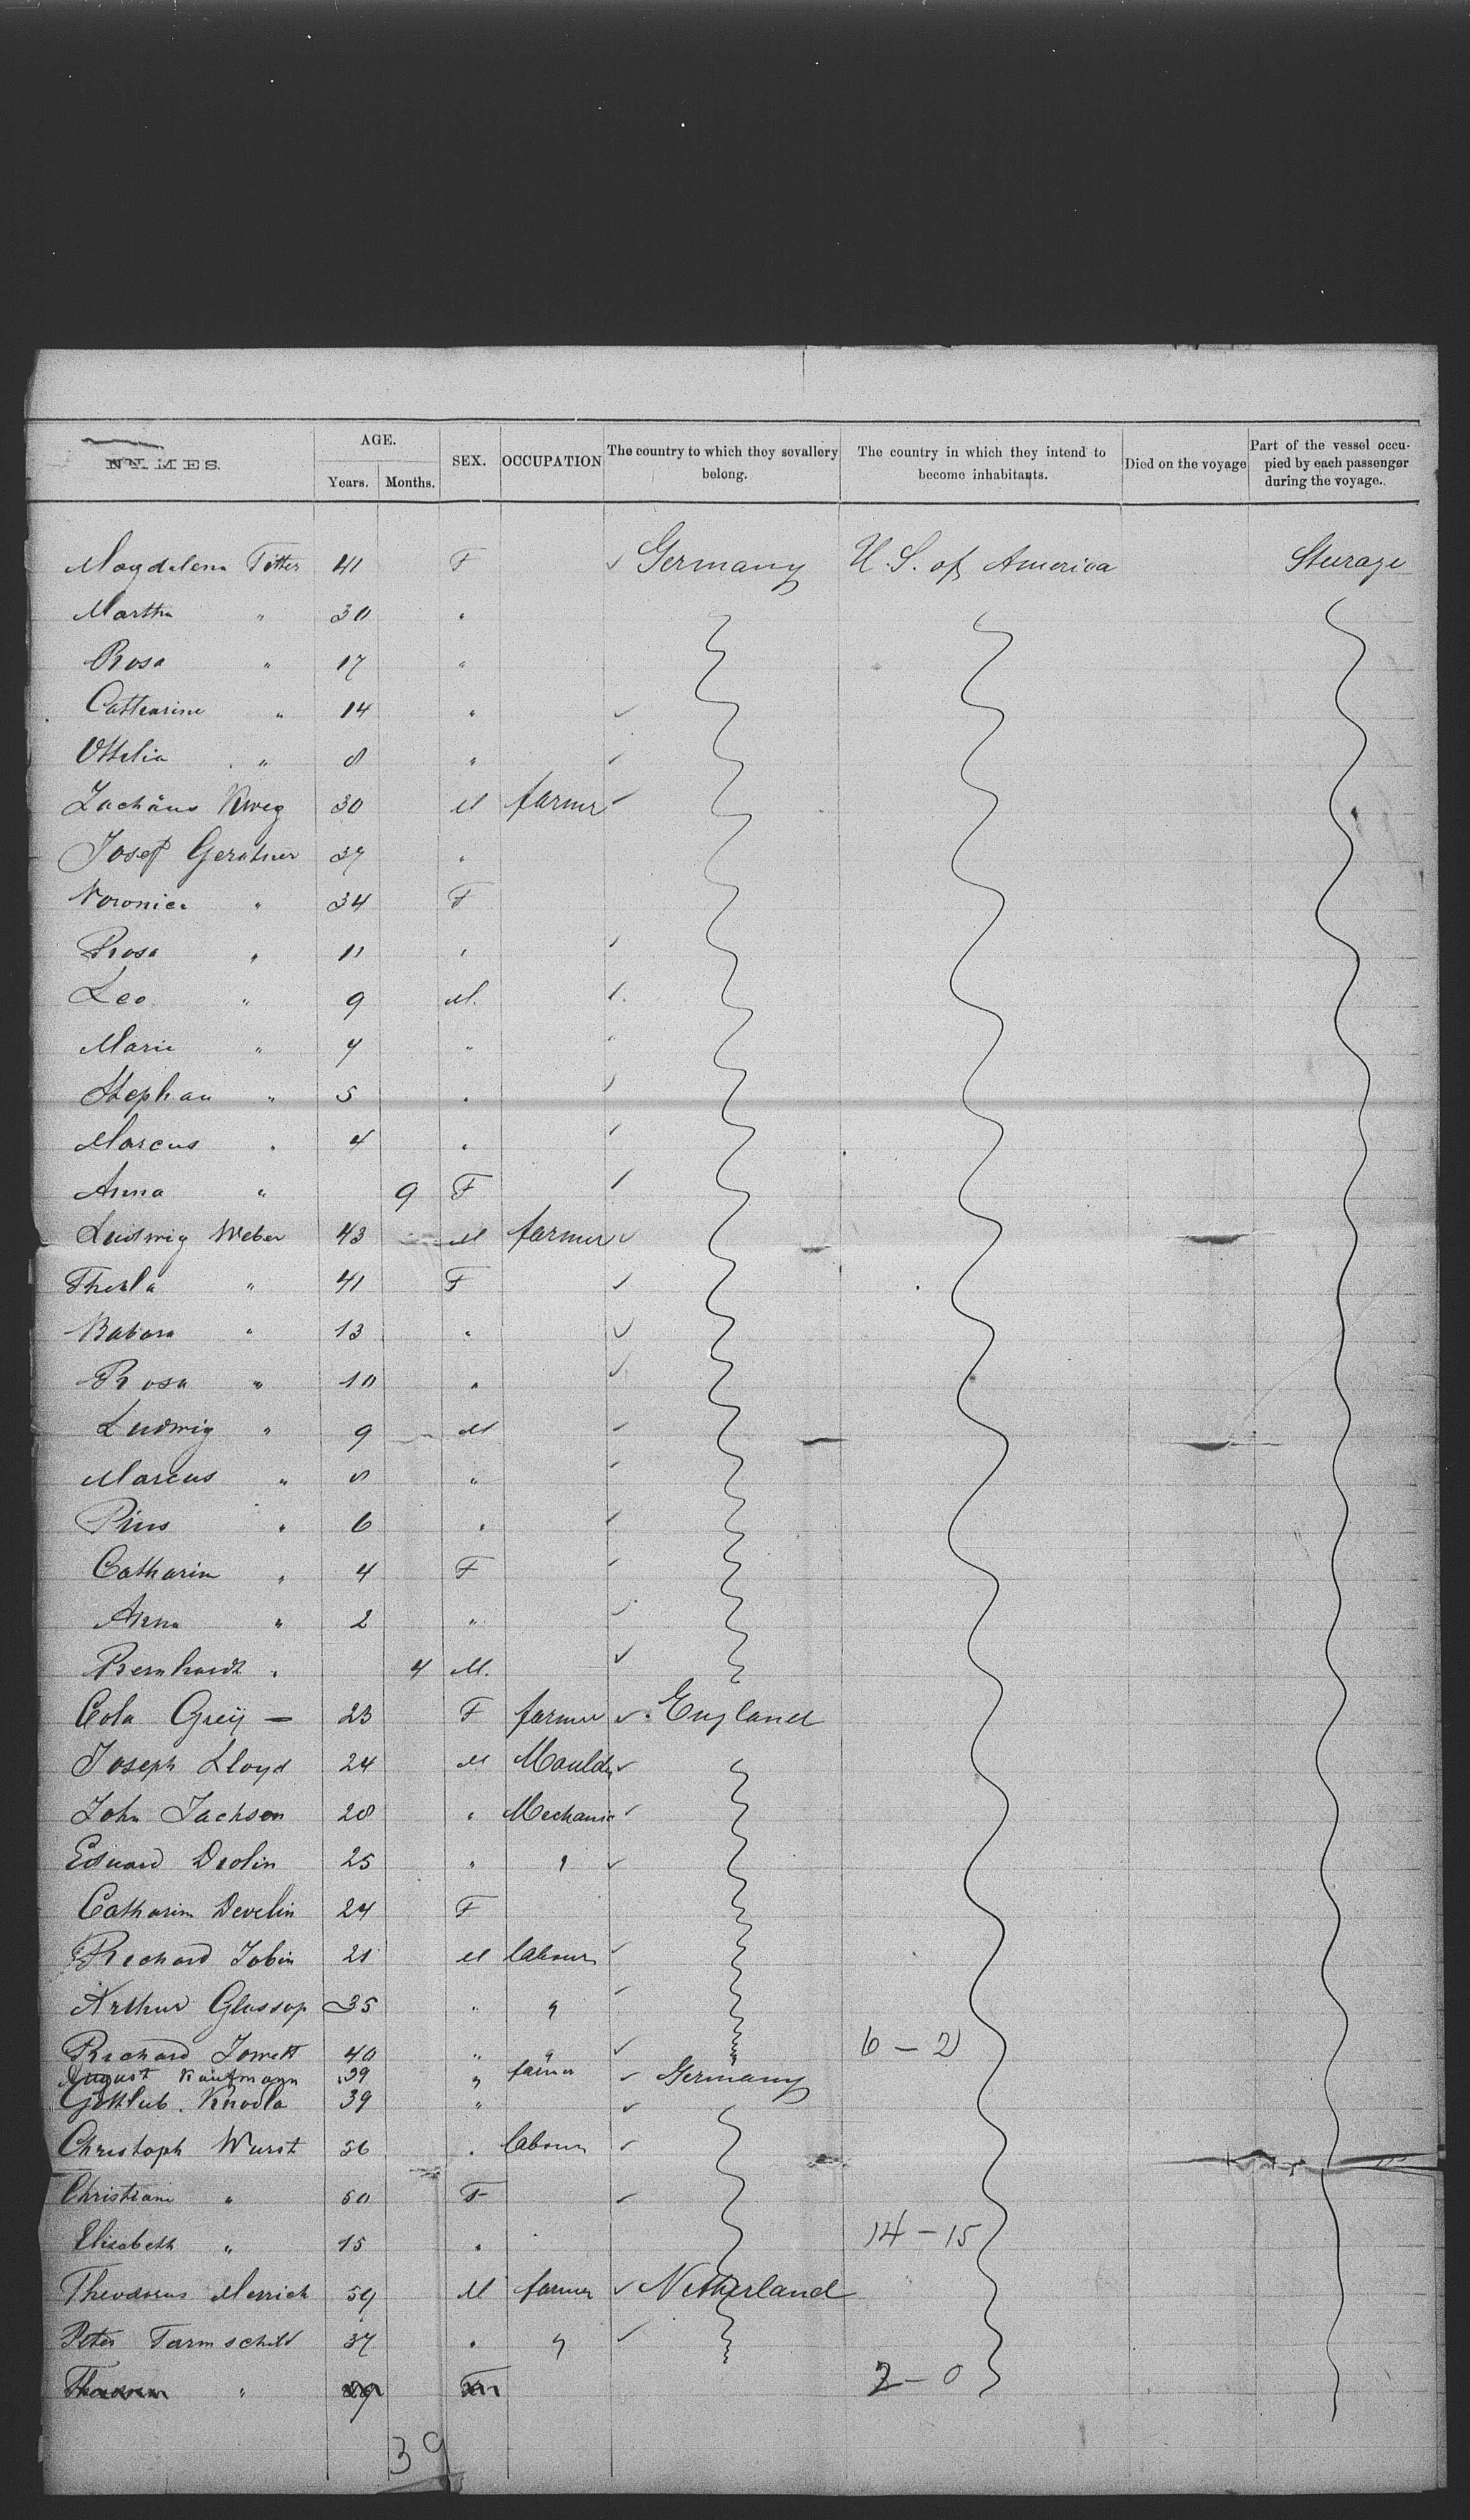 NAMES. AGE. Years. Months. SEX. OCCUPATION The country to which they sevallery belong. The country in which they intend to become inhabitants. Died on the voyage Part of the vessel occupied by each passenger during the voyage.
Magdalena Titter 41 F ✓ Germany U. S. of America Sturage
Martha " 30 "
Rosa " 17 "
Catharine " 14 " ✓
Ottilia " 8 " ✓
Zachäus Kweg 30 M farmer ✓
Josef Gerstner 37 "
Veronica " 34 F
Rosa " 11 " ✓
Leo " 9 M. ✓
Marie " 7 " ✓
Stephan " 5 " ✓
Marcus " 4 " ✓
Anna " 9 F ✓
Ludwig Weber 43 M farmer ✓
Thekla " 41 F ✓
Babara " 13 " ✓
Rosa " 10 " ✓
Ludwig " 9 M ✓
Marcus " 8 " ✓
Pius " 6 " ✓
Catharin " 4 F ✓
Anna " 2 " ✓
Bernhardt " 4 M. ✓
Cola Greij — 23 F farmer ✓ England
Joseph Lloyd 24 M Moulder ✓
John Jackson 28 " Mechanic ✓
Eduard Drolin 25 " " ✓
Catharin Develin 24 F
Richard Tobin 21 M labour ✓
Arthur Glossop 35 " " ✓
Richard Jowett 40 " " ✓ 6 – 2
August Kaufmann 39 " farmer ✓ Germany
Gottlieb Knodla 39 " ✓
Christoph Wurst 56 " labour ✓
Christiane " 50 F ✓
Elisabeth " 15 " 14 – 15
Theodorus Merrich 54 M farmer ✓ Netherland
Peter Tarmschild 37 " " ✓
" 2 – 0
39